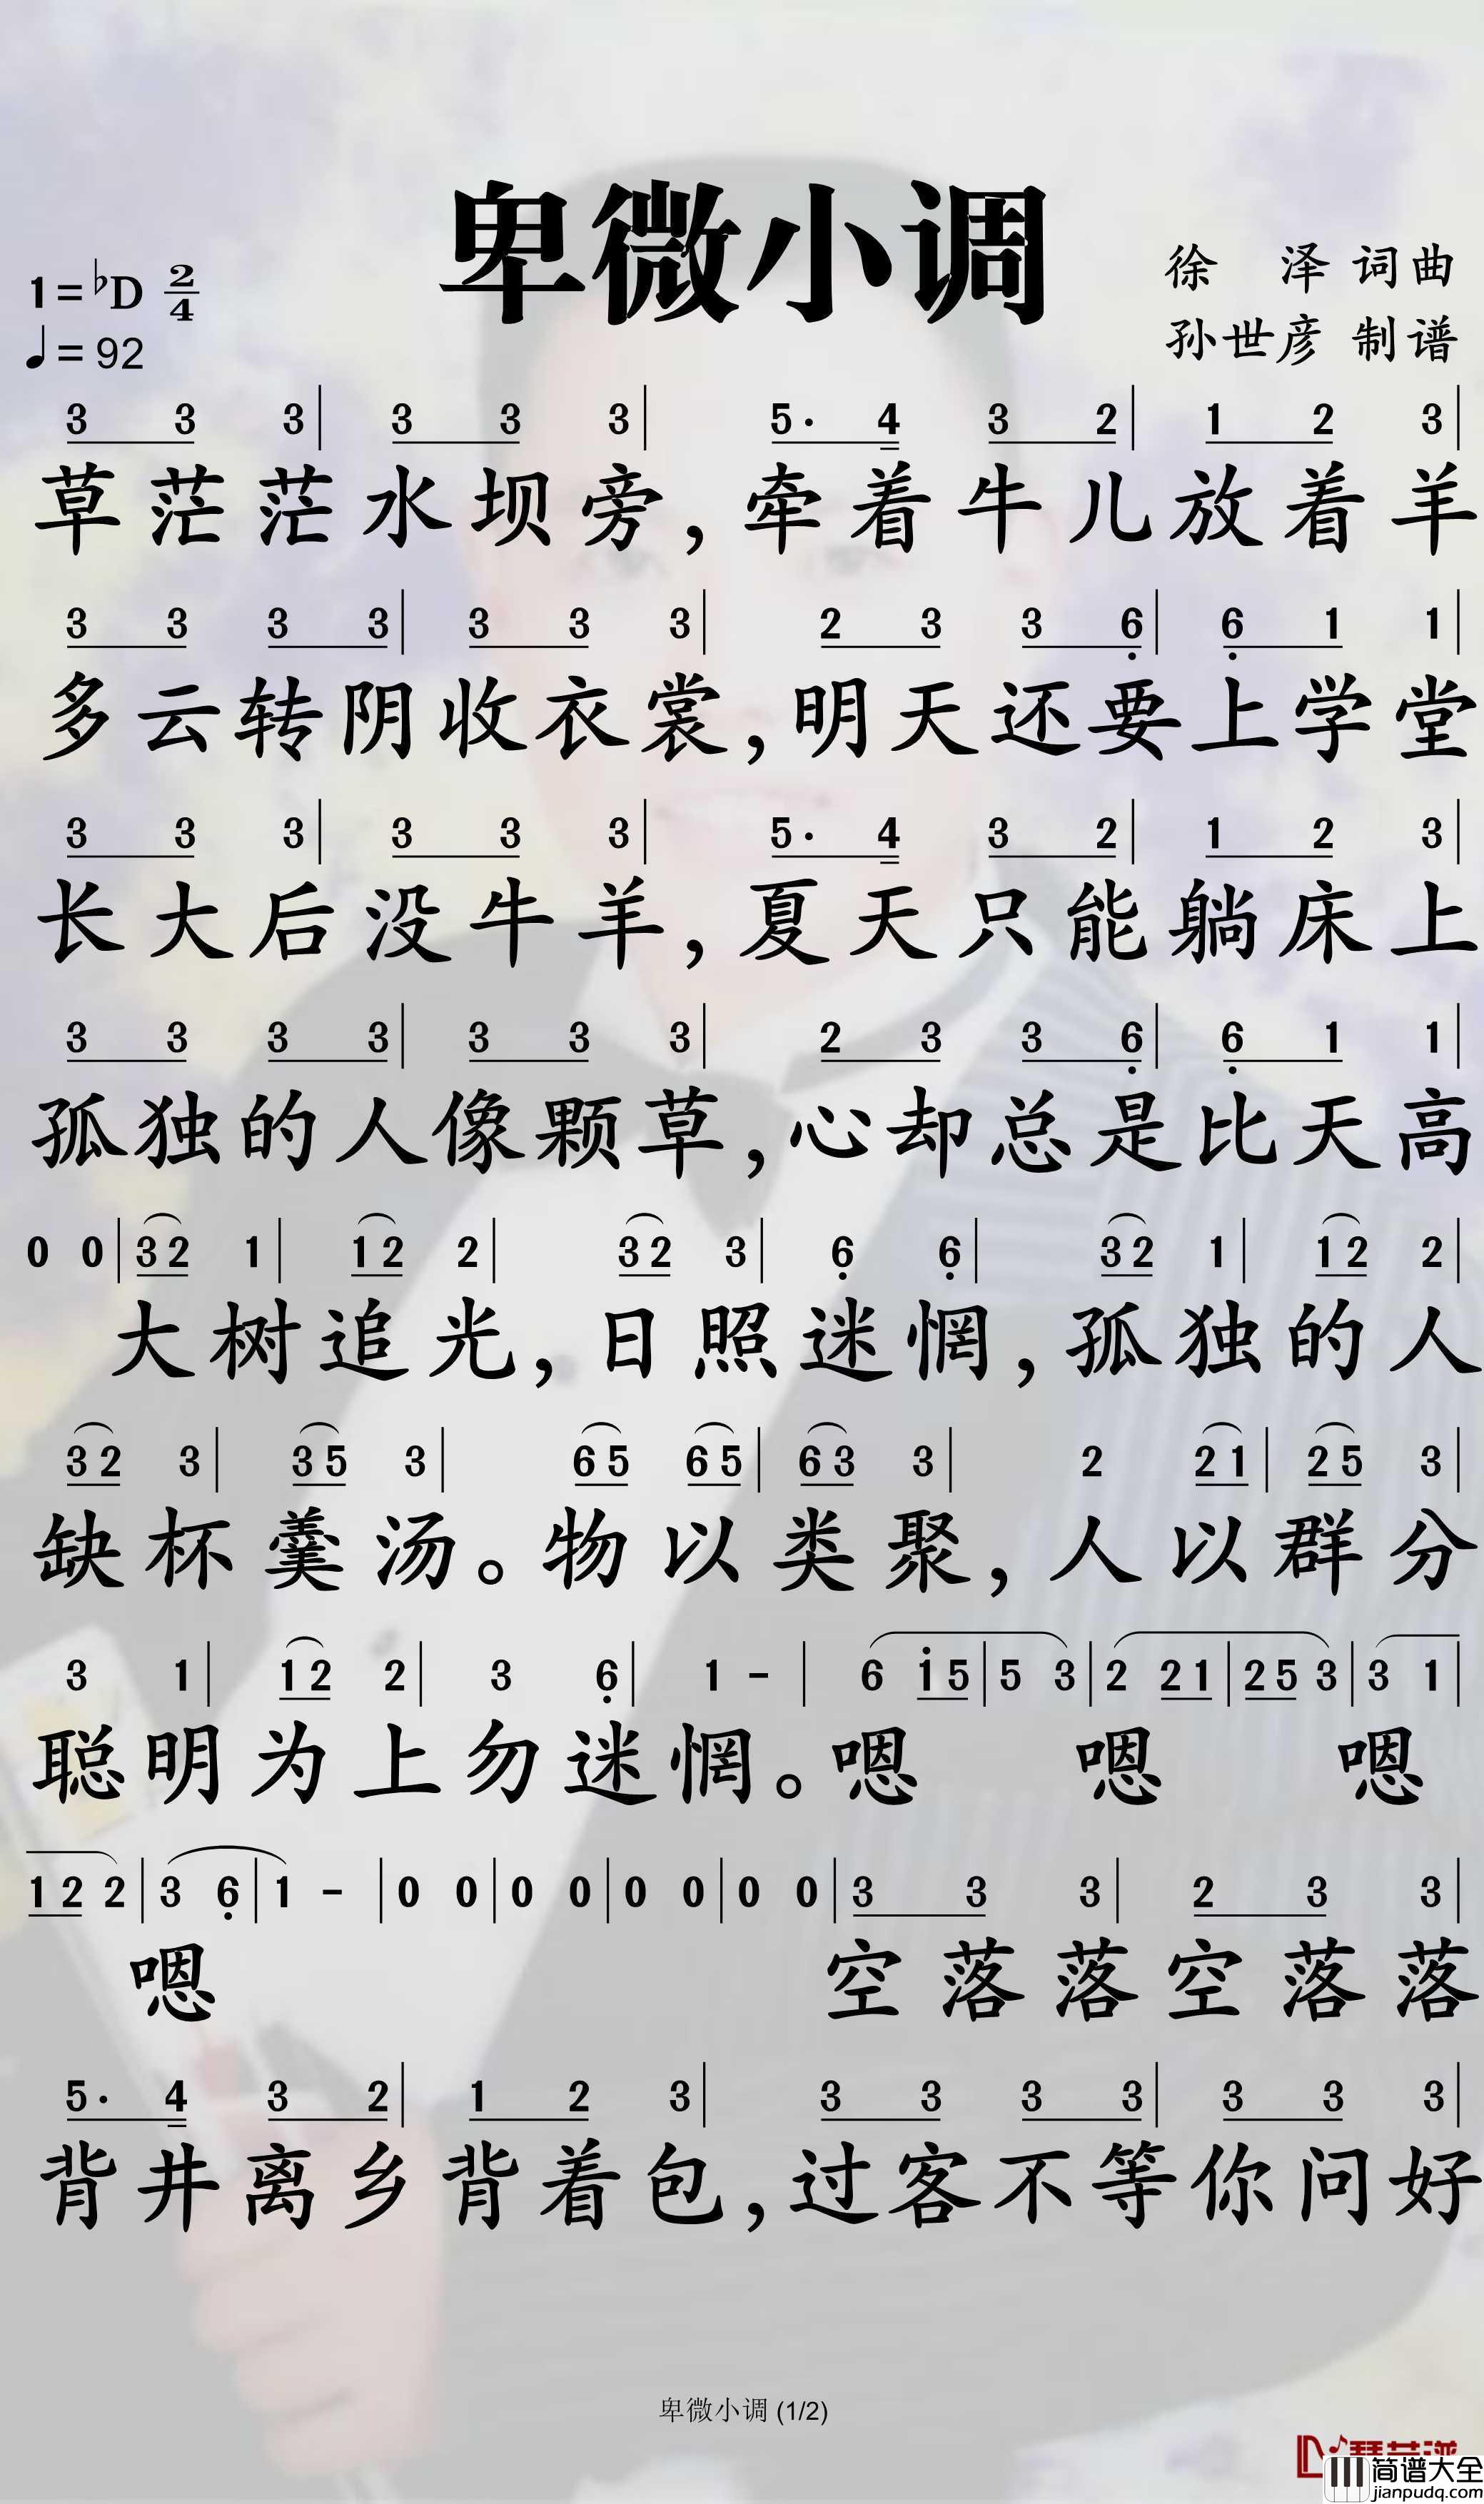 卑微小调
1=♭D 2/4
♩=92
徐 泽 词曲
孙世彦 制谱
3 3 3 | 3 3 3 | 5· 4 3 2 | 1 2 3 |
草茫茫水坝旁,牵着牛儿放着羊
3 3 3 3 | 3 3 3 | 2 3 3 6̣ | 6̣ 1 1 |
多云转阴收衣裳,明天还要上学堂
3 3 3 | 3 3 3 | 5· 4 3 2 | 1 2 3 |
长大后没牛羊,夏天只能躺床上
3 3 3 3 | 3 3 3 | 2 3 3 6̣ | 6̣ 1 1 |
孤独的人像颗草,心却总是比天高
0 0 | 3 2 1 | 1 2 2 | 3 2 3 | 6̣ 6̣ | 3 2 1 | 1 2 2 |
大树追光,日照迷惘,孤独的人
3 2 3 | 3 5 3 | 6 5 6 5 | 6 3 3 | 2 2 1 | 2 5 3 |
缺杯羹汤。物以类聚,人以群分
3 1 | 1 2 2 | 3 6̣ | 1 - | 6 1̇ 5 | 5 3 | 2 2 1 | 2 5 3 | 3 1 |
聪明为上勿迷惘。嗯 嗯 嗯
1 2 2 | 3 6̣ | 1 - | 0 0 | 0 0 | 0 0 | 0 0 | 3 3 3 | 2 3 3 |
嗯 空落落空落落
5· 4 3 2 | 1 2 3 | 3 3 3 3 | 3 3 3 |
背井离乡背着包,过客不等你问好
卑微小调 (1/2)
简谱大全
jianpudq.com